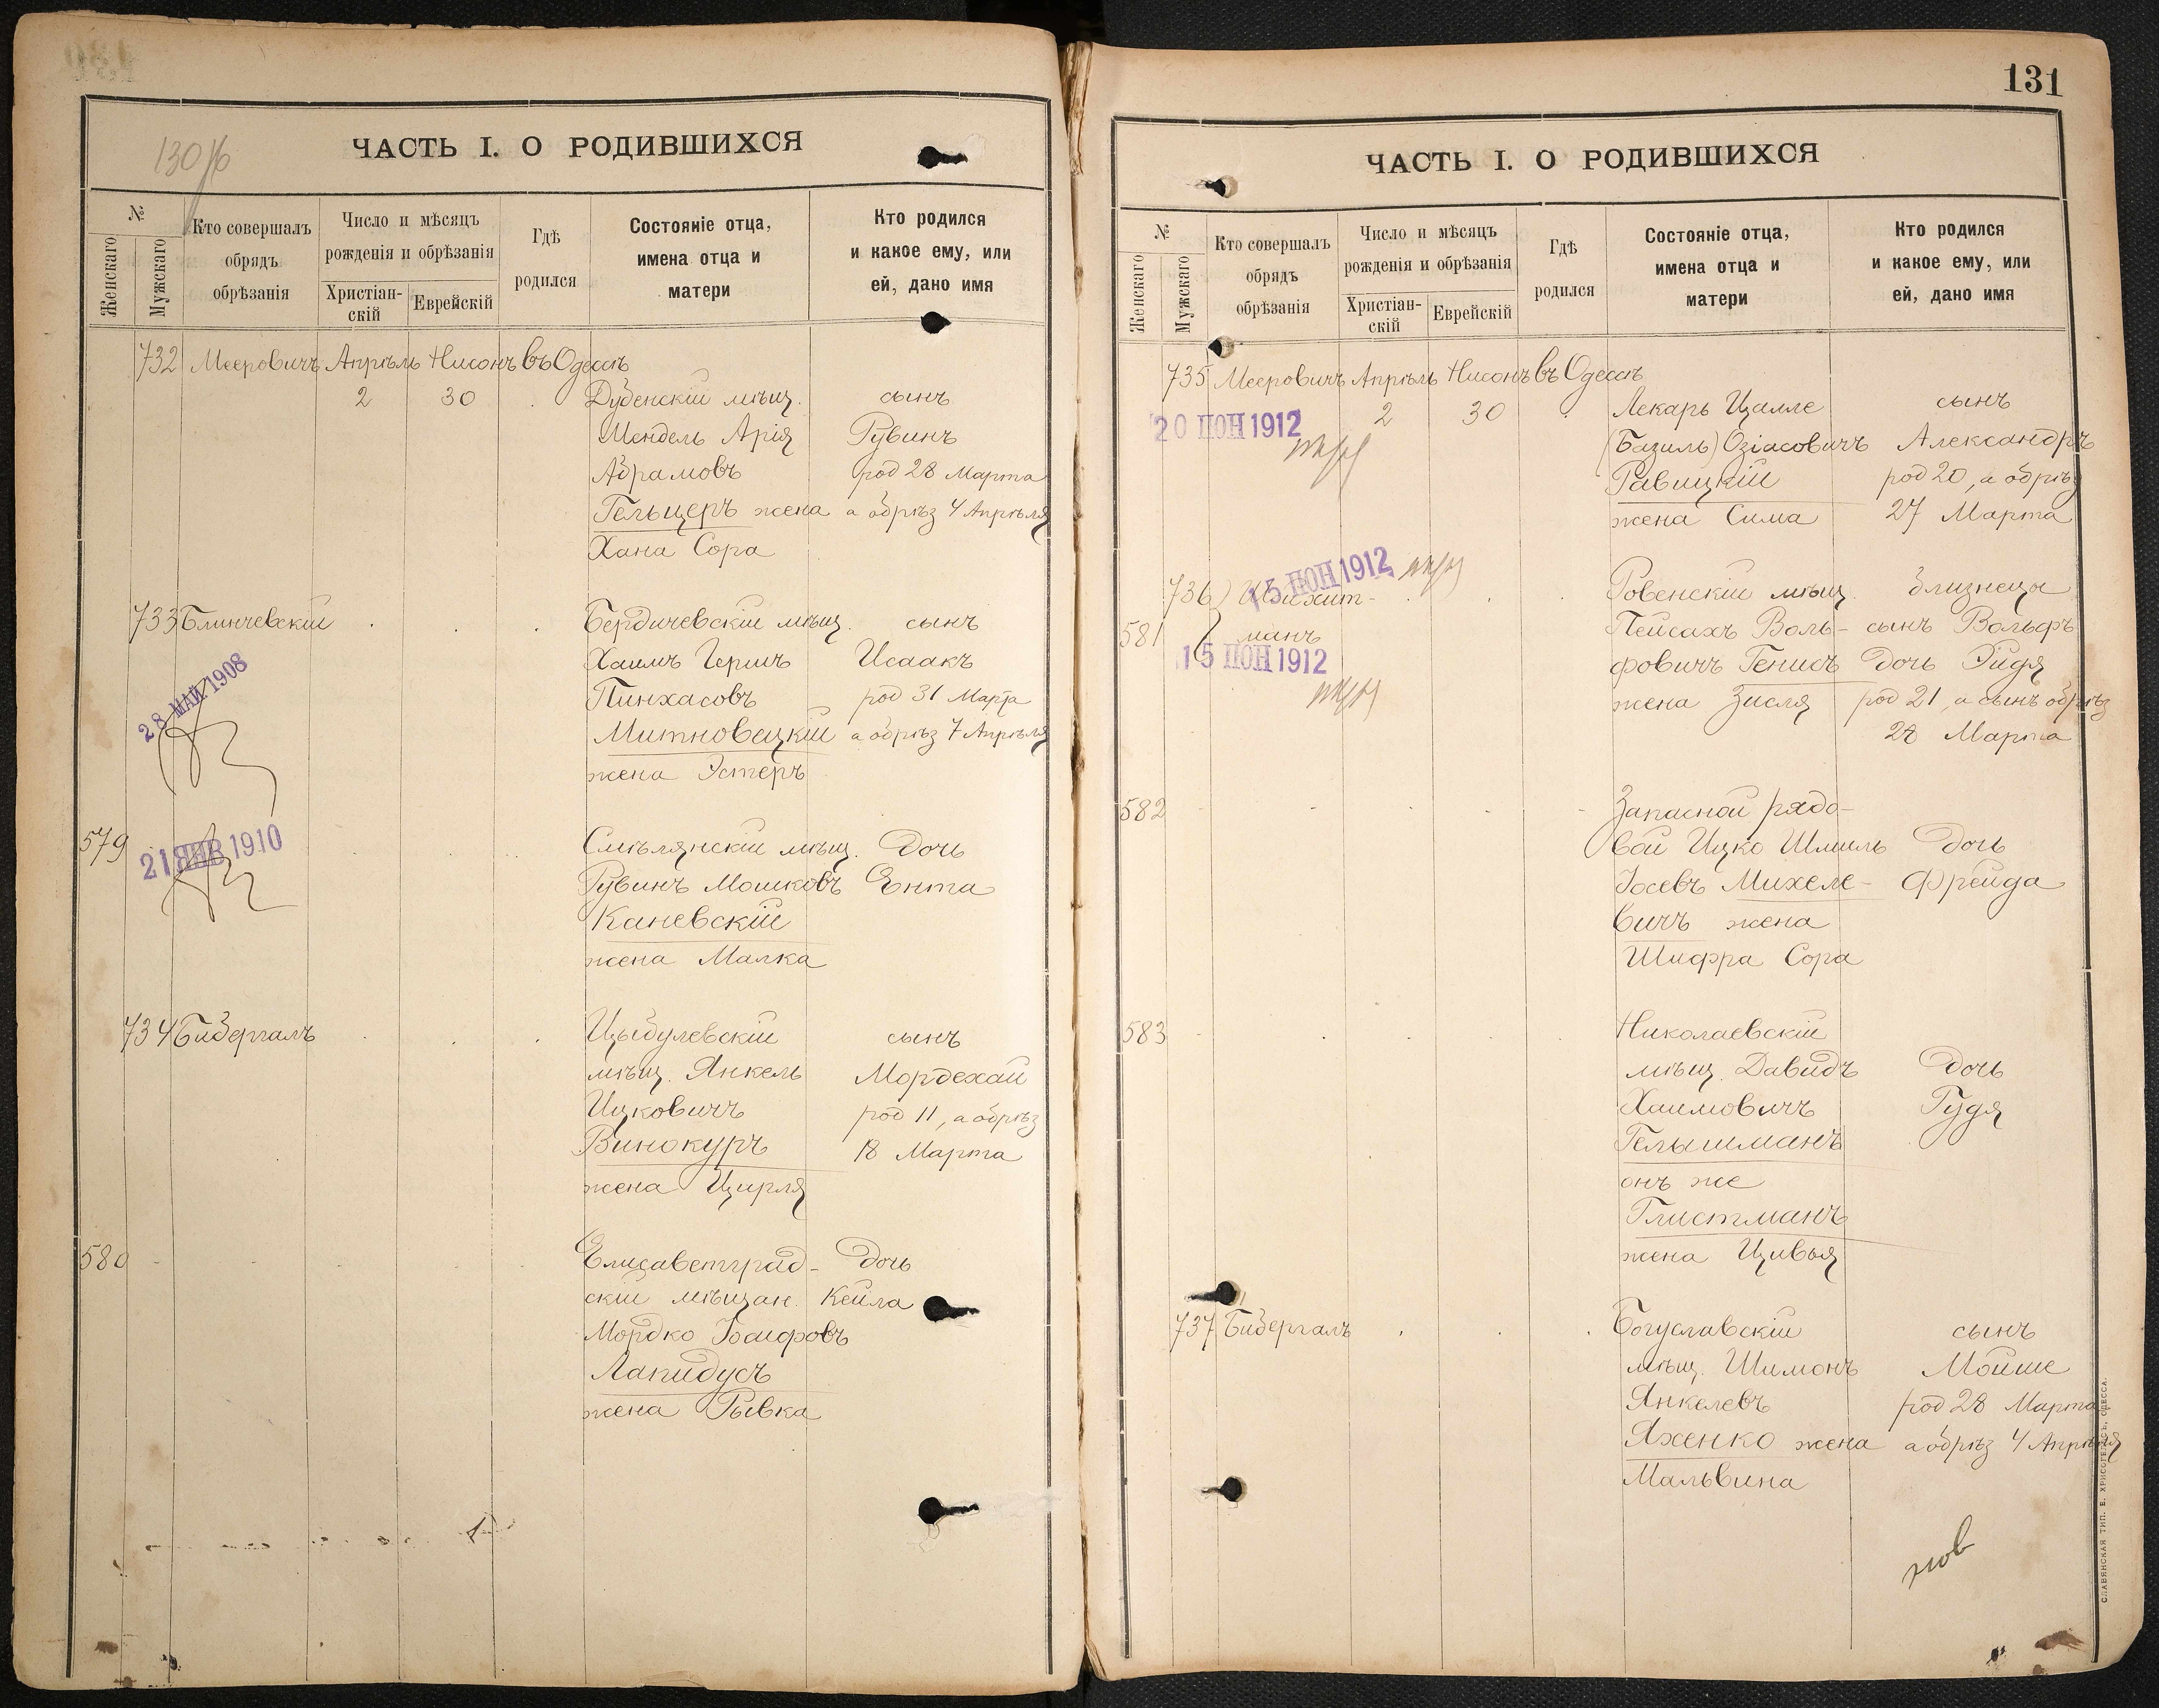 130 Лб
ЧАСТЬ I. О РОДИВШИХСЯ
№
Женскаго
Мужскаго
Кто совершалъ обрядъ обрѣзанія
Число и мѣсяцъ рожденія и обрѣзанія
Христіан-скій
Еврейскій
Гдѣ родился
Состояніе отца, имена отца и матери
Кто родился и какое ему, или ей, дано имя
732 Мееровичъ Апрѣль Нисонъ въ Одессѣ
2 30 Дубенскій мѣщ. сынъ
Мендель Арія Рувинъ
Абрамовъ род 28 Марта
Гельцеръ жена а обрѣз 4 Апрѣля
Хана Сора
733 Блинчевскій Бердичевскій мѣщ. сынъ
Хаимъ Гершъ Исаакъ
28 МАЙ 1908
Пинхасовъ род 31 Марта
Митновецкій а обрѣз 7 Апрѣля
жена Эстеръ
579 Смѣлянскій мѣщ. дочь
21 ЯНВ 1910
Рувинъ Мошковъ Ента
Каневскій
жена Малка
734 Бибергалъ Цыбулевскій сынъ
мѣщ. Янкель Мордехай
Ицковичъ род 11, а обрѣз
Винокуръ 18 Марта
жена Цирля
580 Елисаветград- дочь
скій мѣщан. Кейла
Мордко Іосифовъ
Лапидусъ
жена Рывка
131
ЧАСТЬ I. О РОДИВШИХСЯ
№
Женскаго
Мужскаго
Кто совершалъ обрядъ обрѣзанія
Число и мѣсяцъ рожденія и обрѣзанія
Христіан-скій
Еврейскій
Гдѣ родился
Состояніе отца, имена отца и матери
Кто родился и какое ему, или ей, дано имя
735 Мееровичъ Апрѣль Нисонъ въ Одессѣ
2 30 Лекарь Цалле сынъ
20 ІЮН 1912
(Базиль) Озіасовичъ Александръ
Равицкій род 20, а обрѣз
жена Сима 27 Марта
15 ІЮН 1912
736 Ровенскій мѣщ. близнецы
581 манъ Пейсахъ Воль- сынъ Вольфъ
15 ІЮН 1912
фовичъ Генисъ дочь Эйдя
жена Зисля род 21, а сынъ обрѣз
28 Марта
582 Запасной рядо-
вой Ицко Шмиль дочь
Іосевъ Михеле- Фрейда
вичъ жена
Шифра Сора
583 Николаевскій
мѣщ. Давидъ дочь
Хаимовичъ Гудя
Гельшманъ
онъ же
Глистманъ
жена Цивья
737 Бибергалъ Богуславскій сынъ
мѣщ. Шимонъ Мойше
Янкелевъ род 28 Марта
Яхенко жена а обрѣз 4 Апрѣля
Мальвина
СЛАВЯНСКАЯ ТИП. Е. ХРИСОГЕЛОСЪ, ОДЕССА.